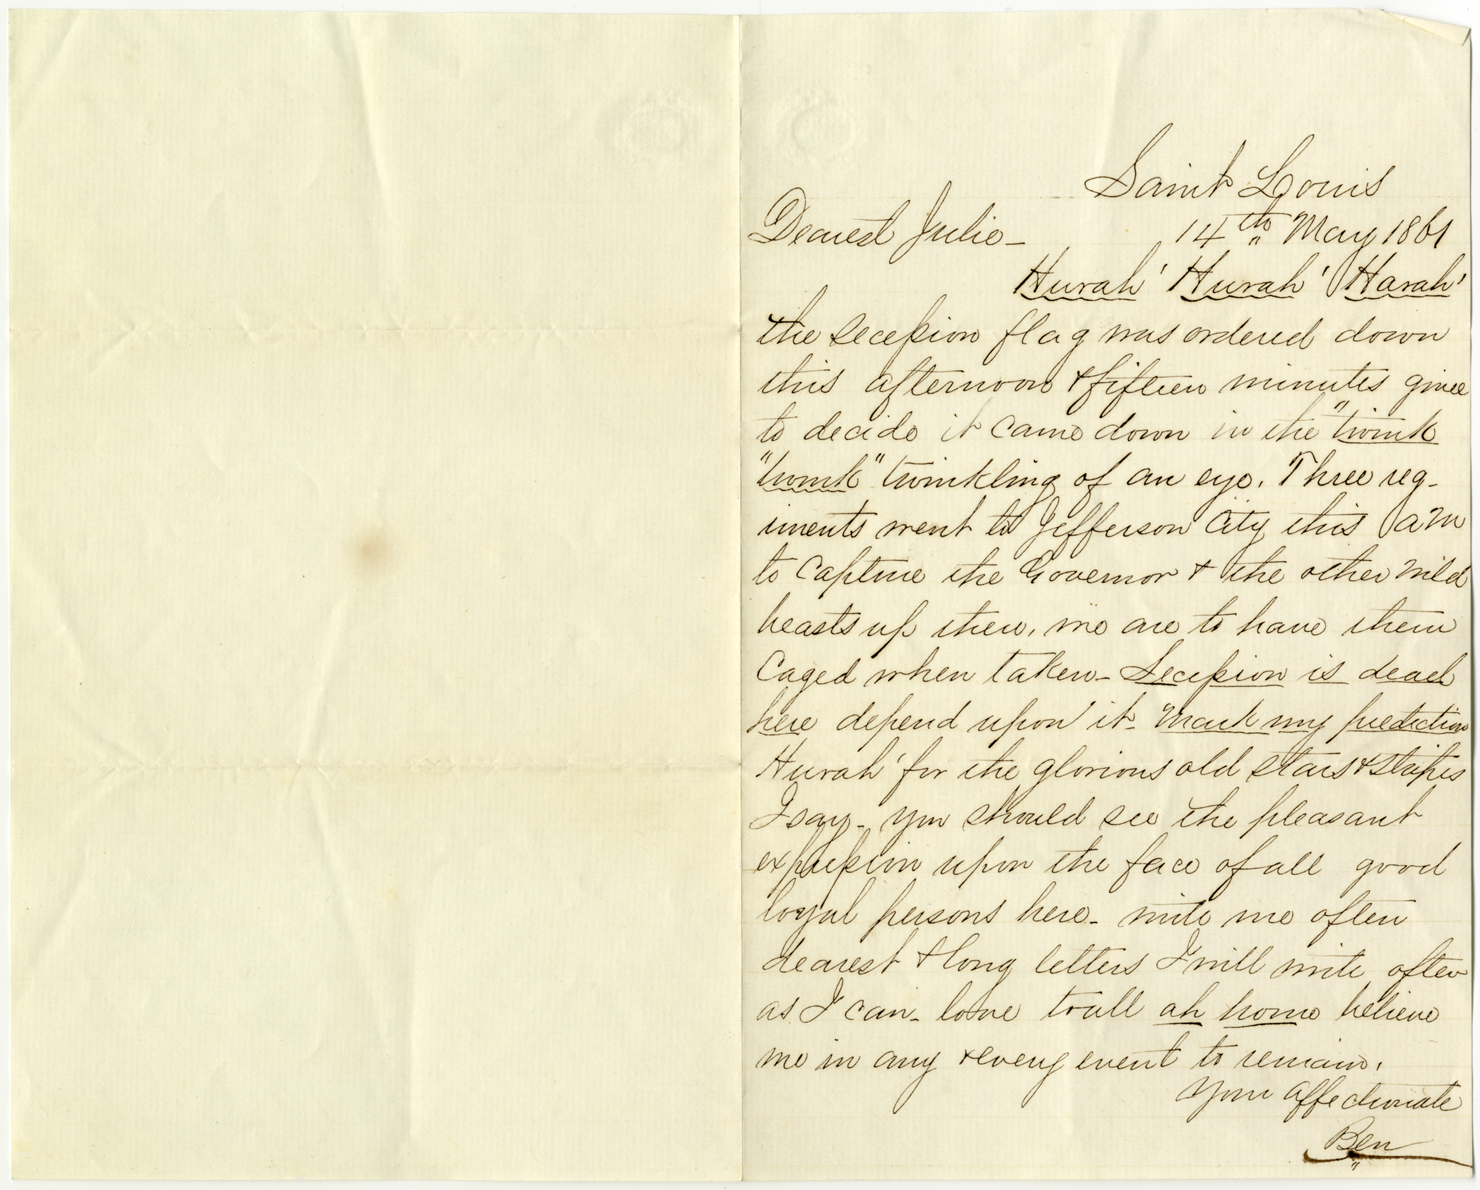 Saint Louis
Dearest Julie_ 14th May 1861
Hurah' Hurah' Harah'
the secession flag was ordered down
this afternoon & fifteen minutes given
to decide it came down in the "twink
"twink" twinkling of an eye. Three reg-
iments went to Jefferson City this AM
to capture the Governor & the other wild
beasts up there, we are to have them
Caged when taken_ Secession is dead
here depend upon it_ Mark my prediction
Hurah' for the glorious old stars & stripes
I say_ you should see the pleasant
expression upon the face of all good
loyal persons here_ write me often
dearest & long letters I will write often
as I can_ love to all ah home believe
me in any & every event to remain.
Your affectionate
Ben